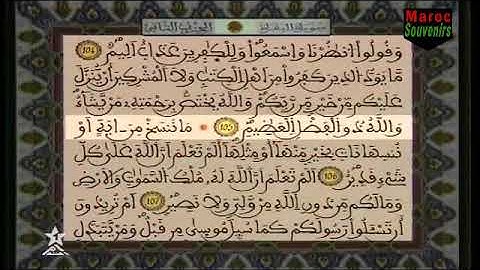 سورة البقرة
الحزب الثاني
Maroc
Souvenirs
وَقُولُوا۟ اُنظُرْنَا وَاسْمَعُوا۟ وَلِلْكٰفِرِينَ عَذَابٌ اَلِيمٌ 104
مَّا يَوَدُّ الذِينَ كَفَرُوا۟ مِنَ اَهْلِ الْكِتٰبِ وَلَا الْمُشْرِكِينَ أَنْ يُّنَزَّلَ
عَلَيْكُم مِّنْ خَيْرٍ مِّن رَّبِّكُمْ وَاللَّهُ يَخْتَصُّ بِرَحْمَتِهِ مَنْ يَّشَآءُ
وَاللَّهُ ذُو الْفَضْلِ الْعَظِيمِ 105 مَا نَنسَخْ مِنَ اٰيَةٍ اَوْ
نُنسِهَا نَاتِ بِخَيْرٍ مِّنْهَآ أَوْ مِثْلِهَآ أَلَمْ تَعْلَمَ اَنَّ اللَّهَ عَلَىٰ كُلِّ
شَےْءٍ قَدِيرٌ 106 اَلَمْ تَعْلَمَ اَنَّ اللَّهَ لَهُ مُلْكُ السَّمٰوٰتِ وَالَارْضِ
وَمَا لَكُم مِّن دُونِ اللَّهِ مِنْ وَّلِيٍّ وَلَا نَصِيرٍ 107 اَمْ تُرِيدُونَ
أَن تَسْـَٔلُوا۟ رَسُولَكُمْ كَمَا سُئِلَ مُوسَىٰ مِن قَبْلُ وَمَنْ يَّتَبَدَّلِ